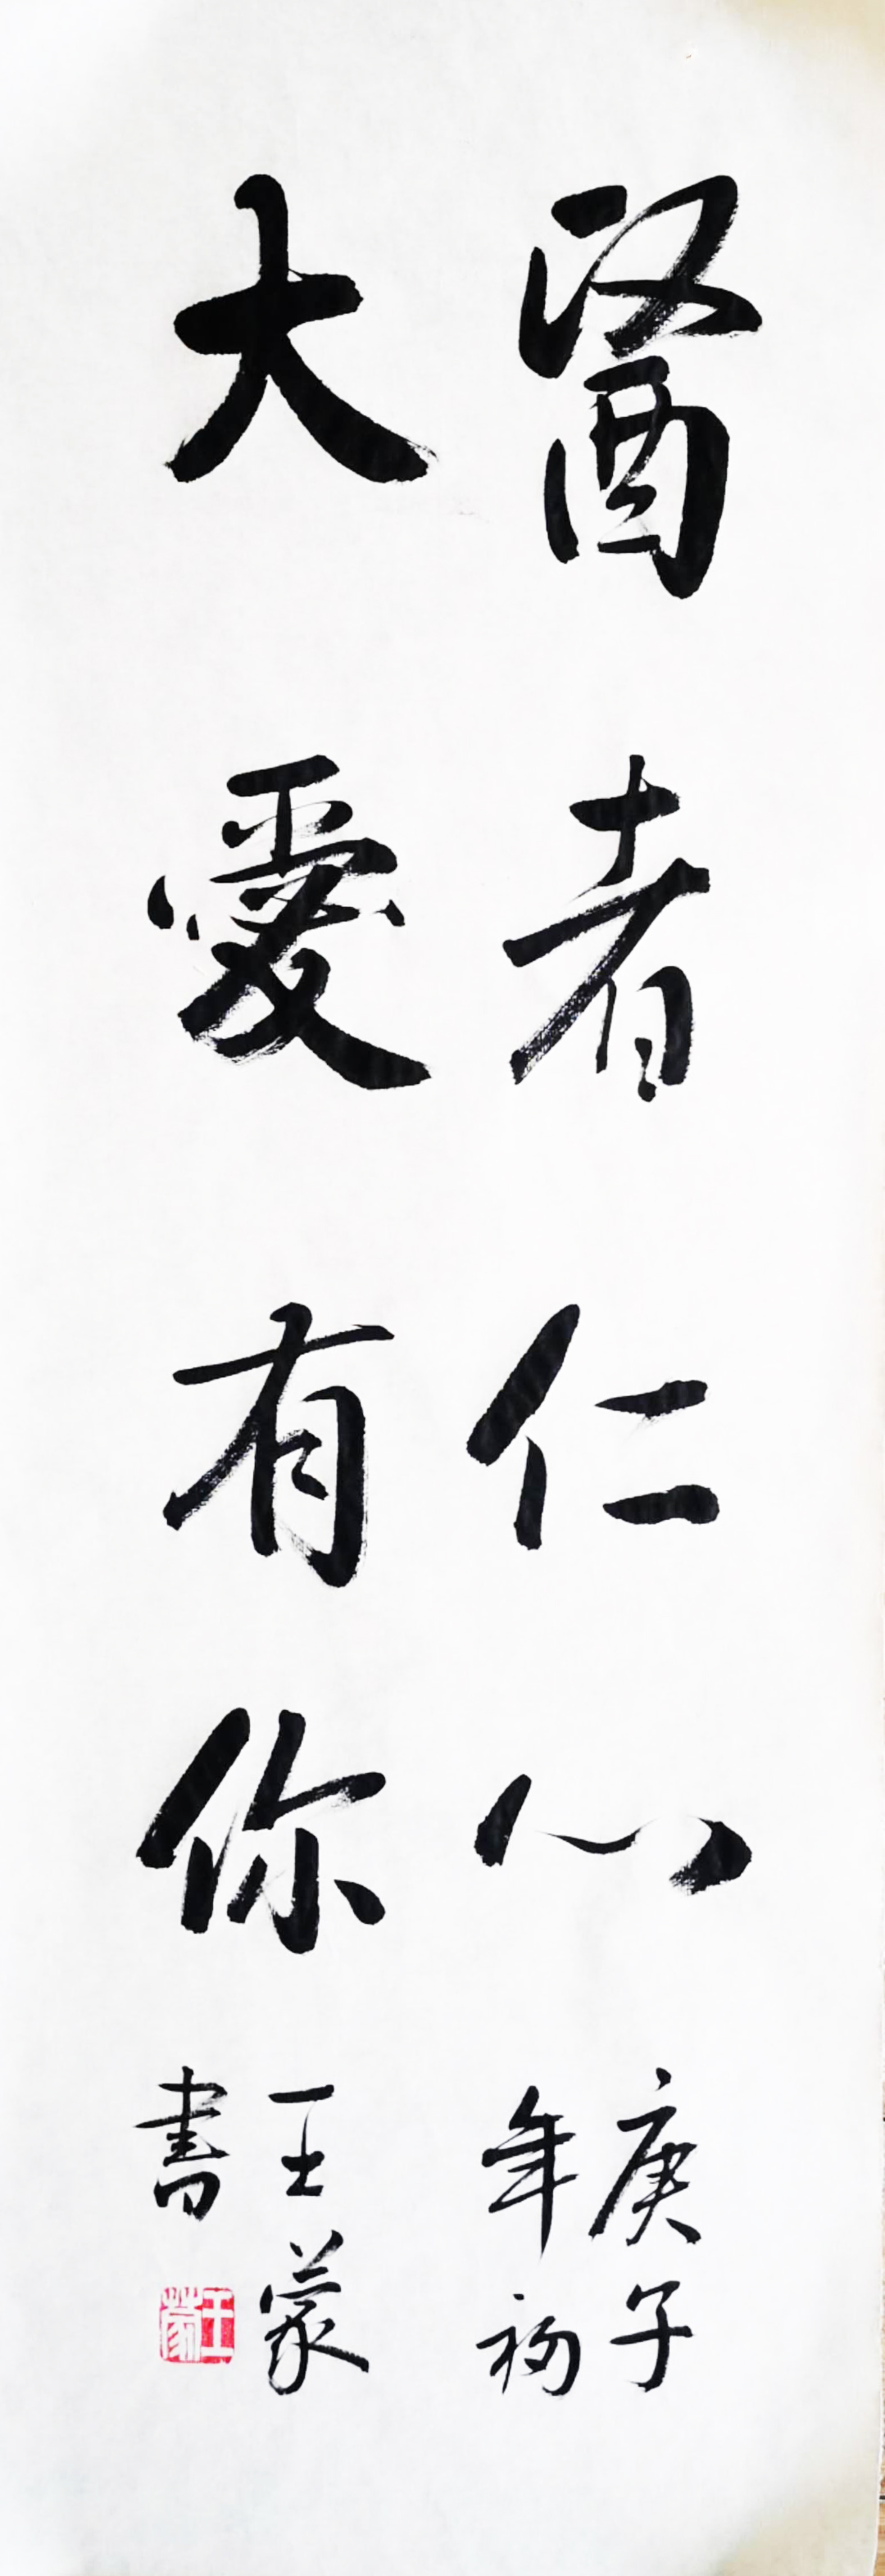 醫者仁心
大愛有你
庚子
年初
王蒙
書
王蒙